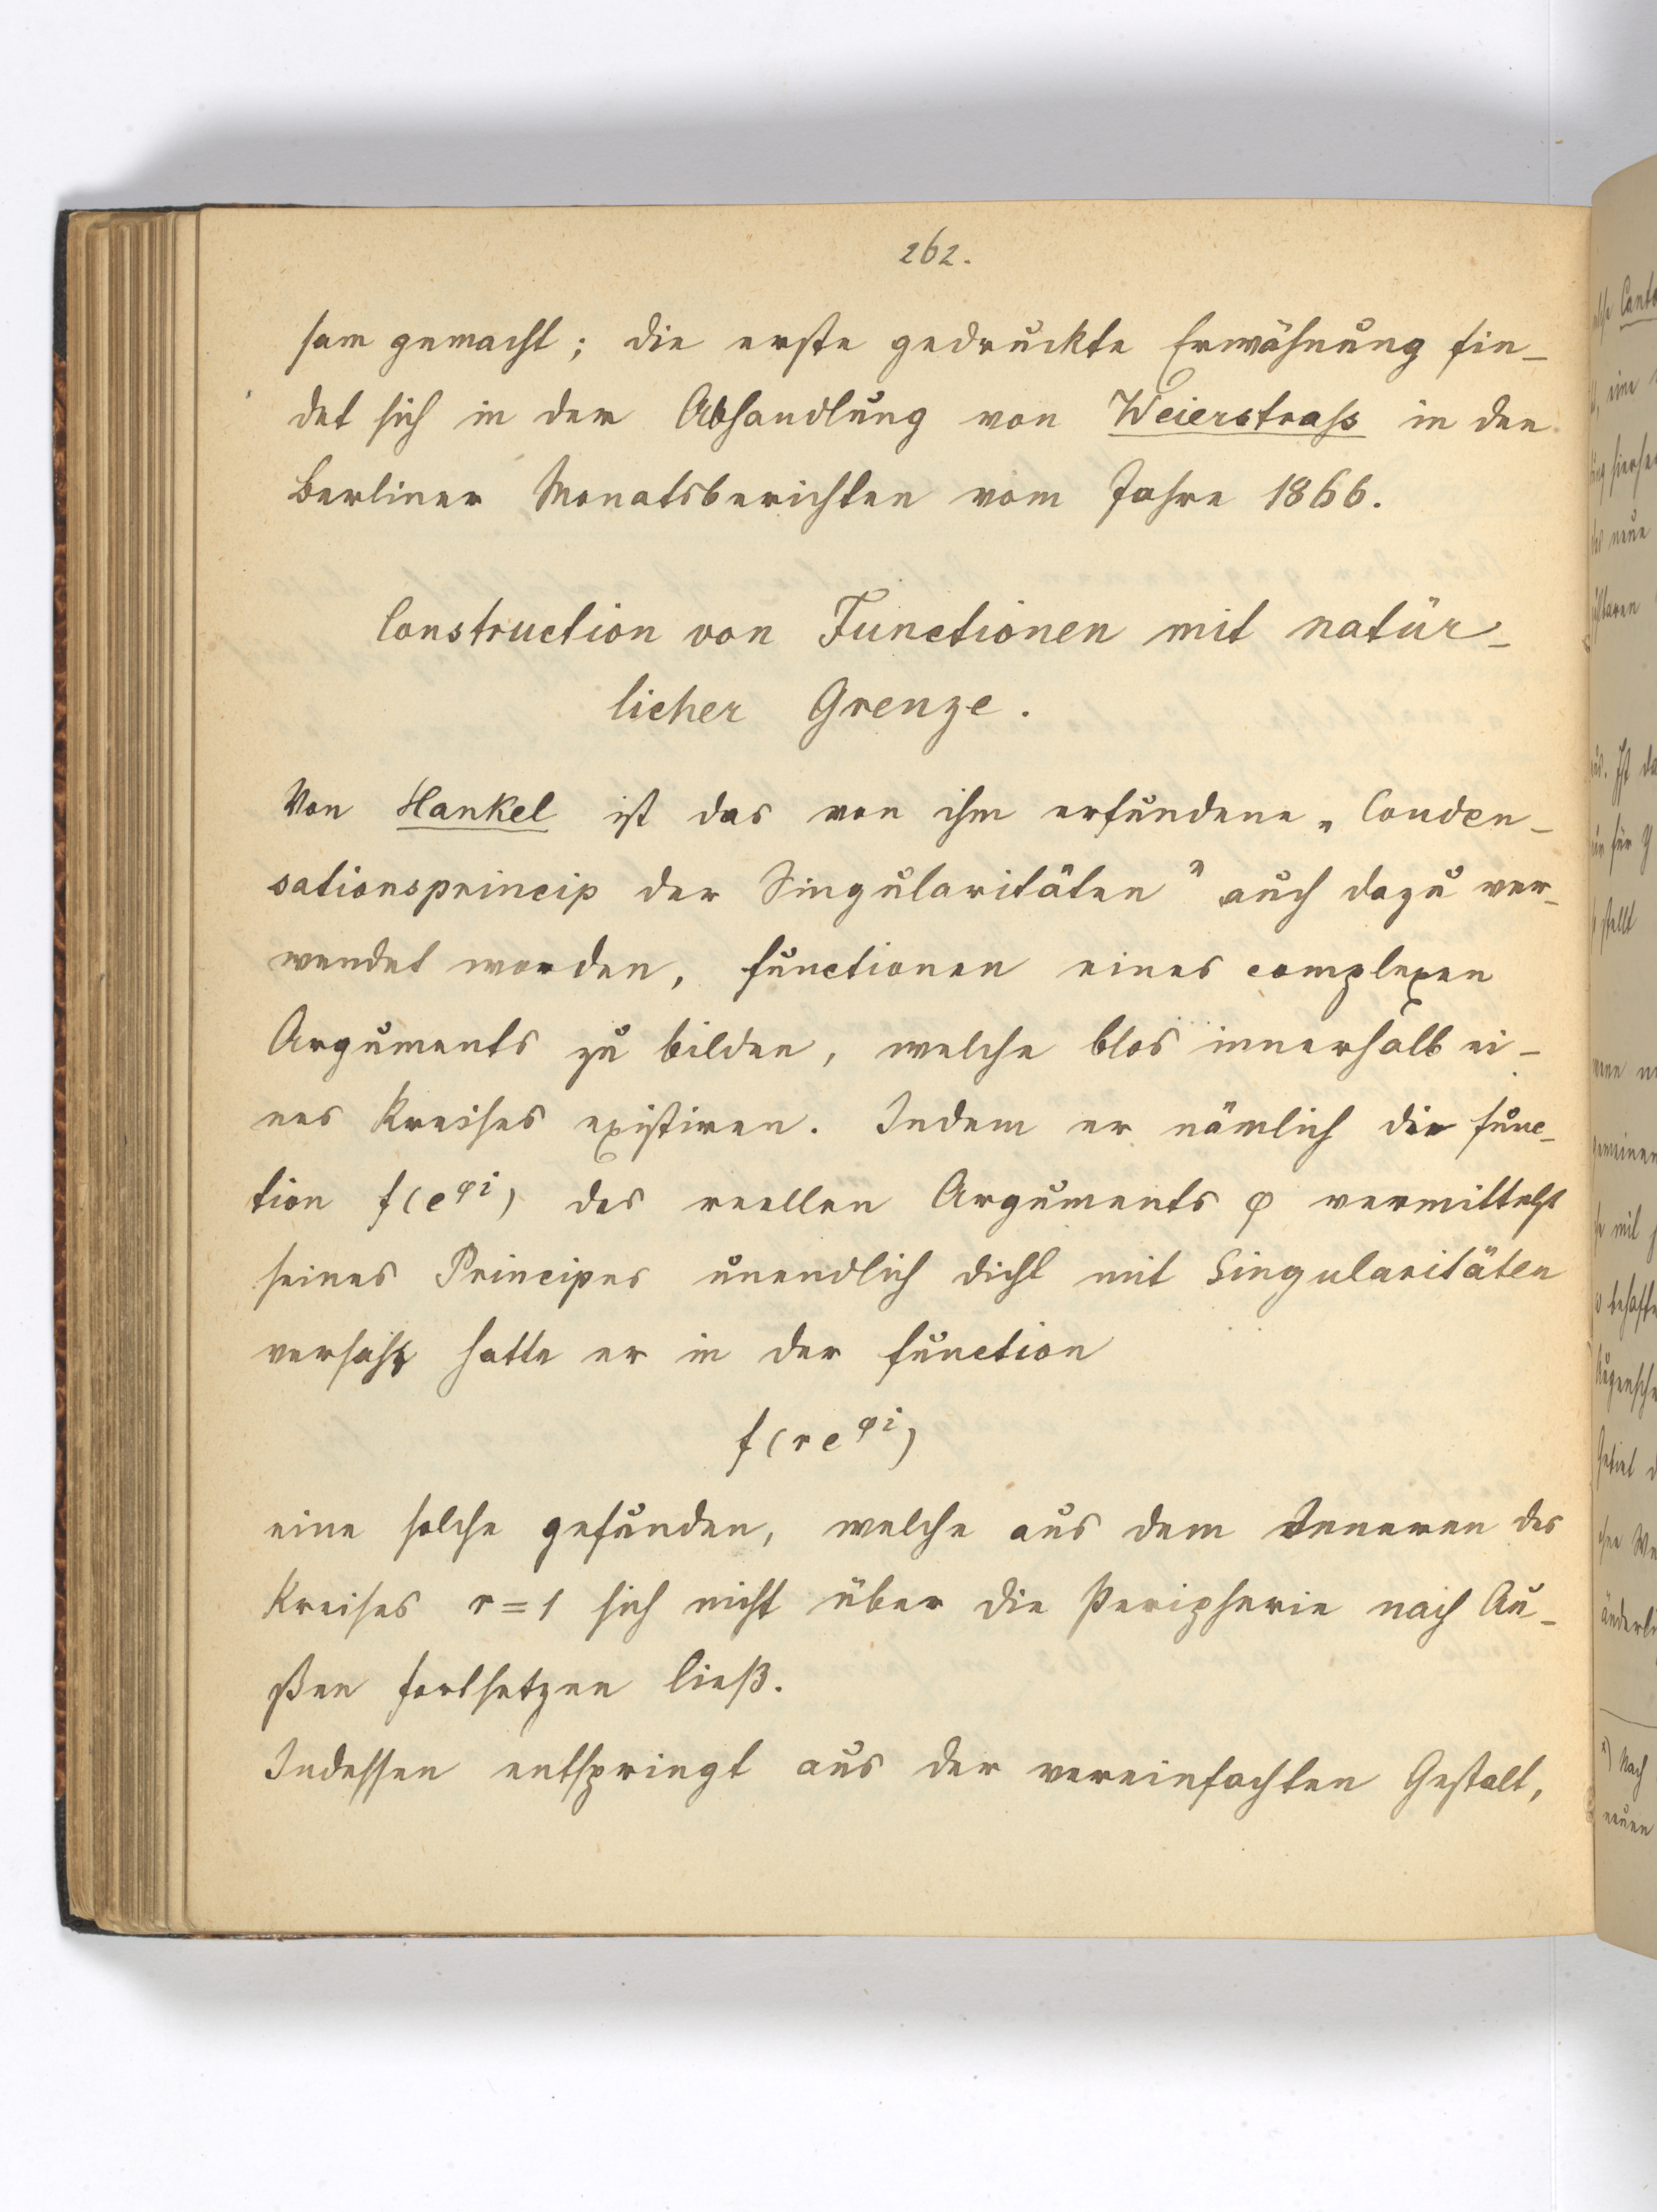 262.
sam gemacht; die erste gedruckte Erwähnung fin-
det sich in der Abhandlung von Weierstraſs in den
Berliner Monatsberichten vom Jahre 1866.
Construction von Functionen mit natür-
licher Grenze.
Von Hankel ist das von ihm erfundene „Conden-
sationsprincip der Singularitäten" auch dazu ver-
wendet worden, Functionen eines complexen
Arguments zu bilden, welche blos innerhalb ei-
nes Kreises existiren. Indem er nämlich die Func-
tion f(e^{φi}) des reellen Arguments φ vermittelst
seines Principes unendlich dicht mit Singularitäten
versah, hatte er in der Function
f(re^{φi})
eine solche gefunden, welche aus dem Inneren des
Kreises r=1 sich nicht über die Peripherie nach Au-
ßen fortsetzen ließ.
Indessen entspringt aus der vereinfachten Gestalt,